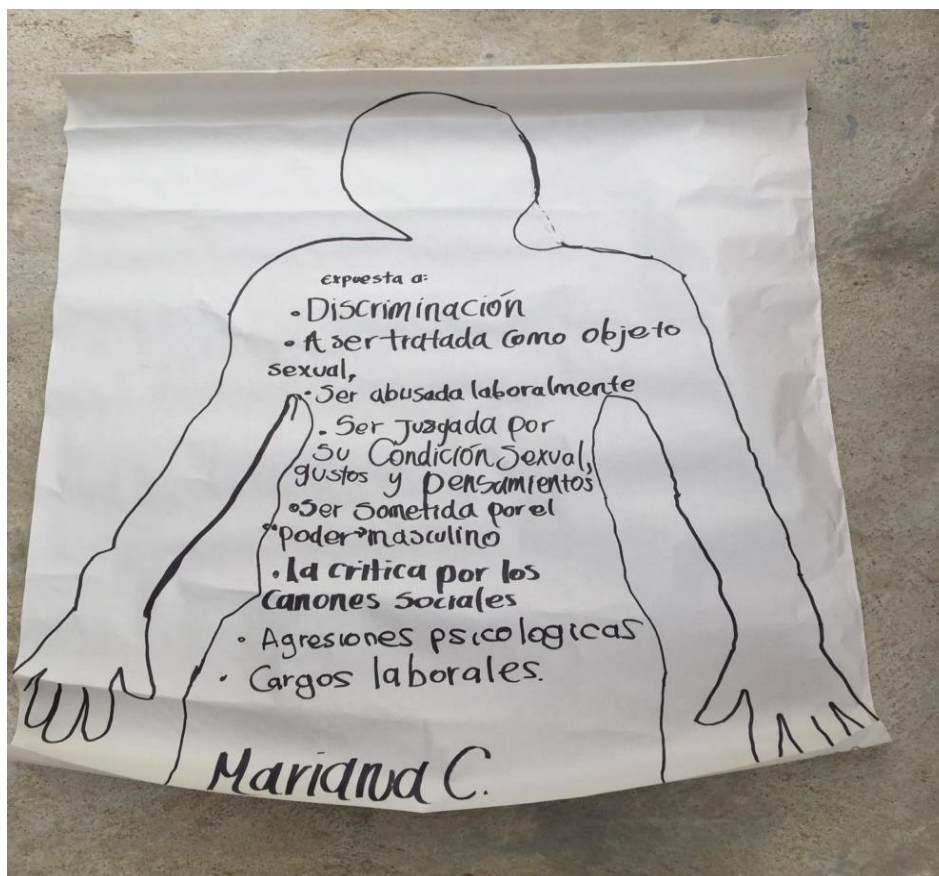 Expuesta a:
• Discriminación
• A ser tratada como objeto
sexual,
• Ser abusada laboralmente
• Ser Juzgada por
su Condición Sexual,
gustos y pensamientos
• Ser sometida por el
"poder" masculino
• la critica por los
Canones Sociales
• Agresiones psicologicas
• Cargos laborales.
Mariana C.